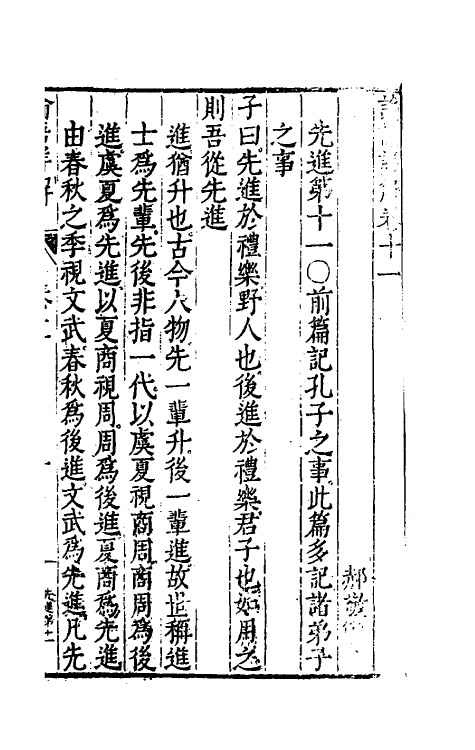 卷十一
郝敬
先進第十一○前篇記孔子之事此篇多記諸弟子
之事
子曰先進於禮樂野人也後進於禮樂君子也如用之
則吾從先進
進猶升也古今人物先一輩升後一輩進故世稱進
士爲先輩先後非指一代以虞夏視商周商周爲後
進虞夏爲先進以夏商視周周爲後進夏商爲先進
由春秋之季視文武春秋爲後進文武爲先進凡先
先進第十一